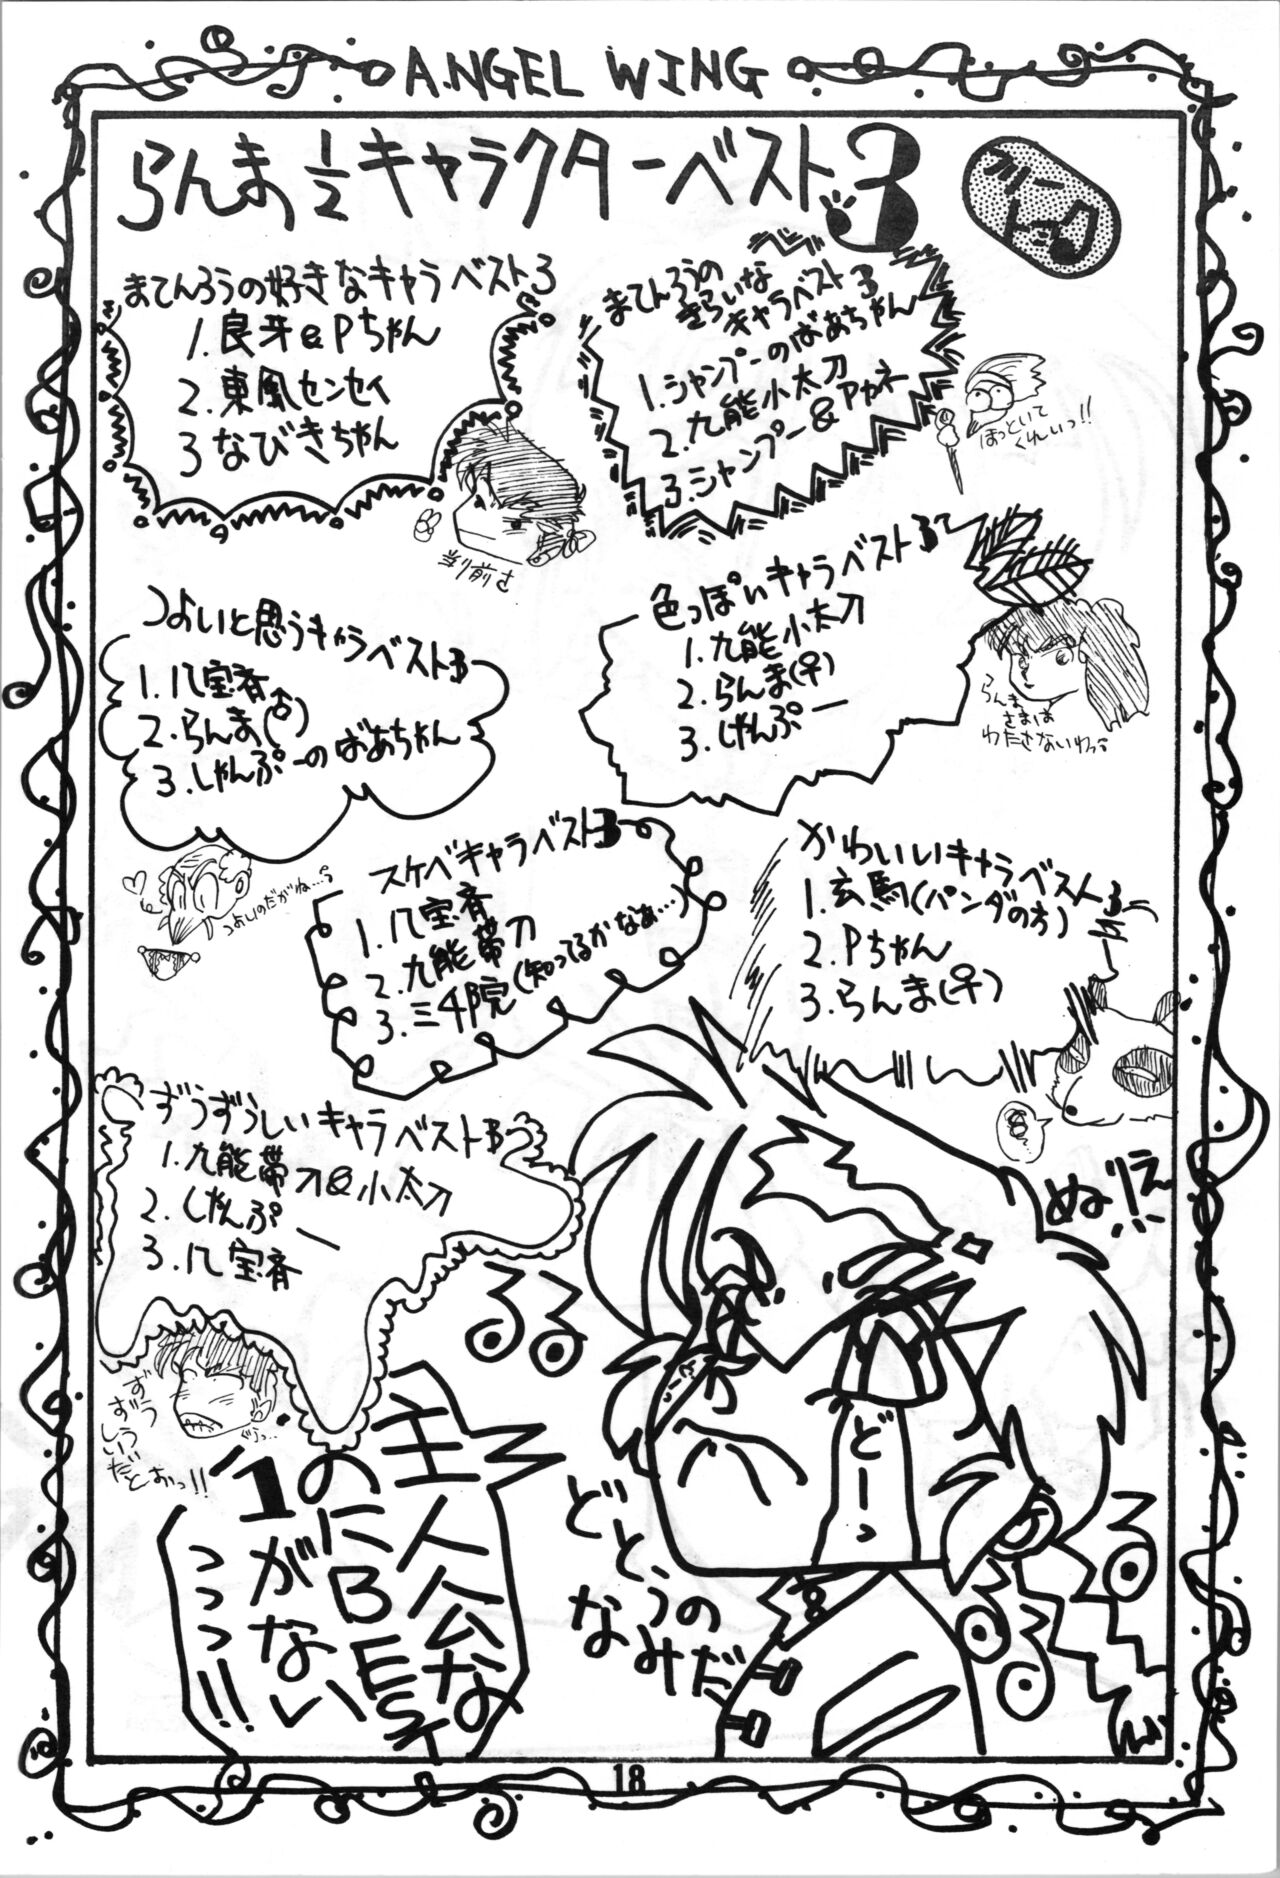 ANGEL WING
らんま1/2キャラクターベスト3
フリートーク
まてんろうの好きなキャラベスト3
1.良牙&Pちゃん
2.東風センセイ
3 なびきちゃん
当り前さ
まてんろうの
きらいな
キャラベスト3
1.シャンプーのばあちゃん
2.九能小太刀
3.シャンプー&アカネ
ほっといて
くれいっ!!
つよいと思うキャラベスト3
1.八宝斉
2.らんま(♂)
3.しゃんぷーのばあちゃん
つよいのだがね…
色っぽいキャラベスト3
1.九能小太刀
2.らんま(♀)
3.しゃんぷー
らんま
さまは
わたさないわっ
スケベキャラベスト3
1.八宝斉
2.九能帯刀
3.三千院(知ってるかなぁ…)
かわいいキャラベスト3
1.玄馬(パンダの方)
2.Pちゃん
3.らんま(♀)
ずうずうしいキャラベスト3
1.九能帯刀&小太刀
2.しゃんぷー
3.八宝斉
ずう
ずう
しい
だとおっ!!
ぐらっ…
ぬりえ!
るる
どーっ
どとうの
なみだ
るるる
主人公な
のにBEST
1がない
っっっ!!
18